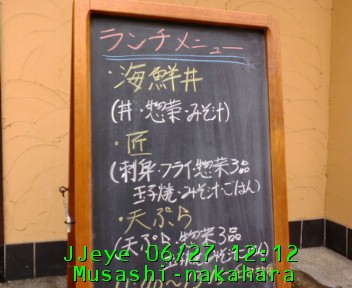 ランチメニュー
・海鮮丼
(丼・惣菜・みそ汁)
・匠
(刺身・フライ・惣菜3品
玉子焼・みそ汁・ごはん)
・天ぷら
(天ぷら・惣菜3品
JJeye 06/27 12:12
Musashi-nakahara